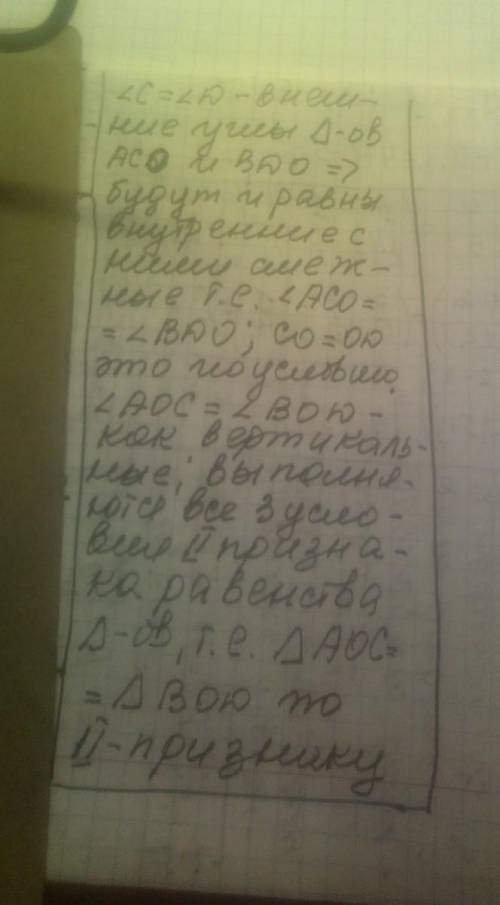 ∠C=∠D-внеш-
ние углы Δ-ов
ACO и BDO =>
будут и равны
внутренние с
ними смеж-
ные т.е. ∠ACO=
=∠BDO; CO=OD
это по условию.
∠AOC=∠BOD-
как вертикаль-
ные; выполня-
ются все 3 усло-
вия II призна-
ка равенства
Δ-ов, т.е. ΔAOC=
=ΔBOD по
II-признаку